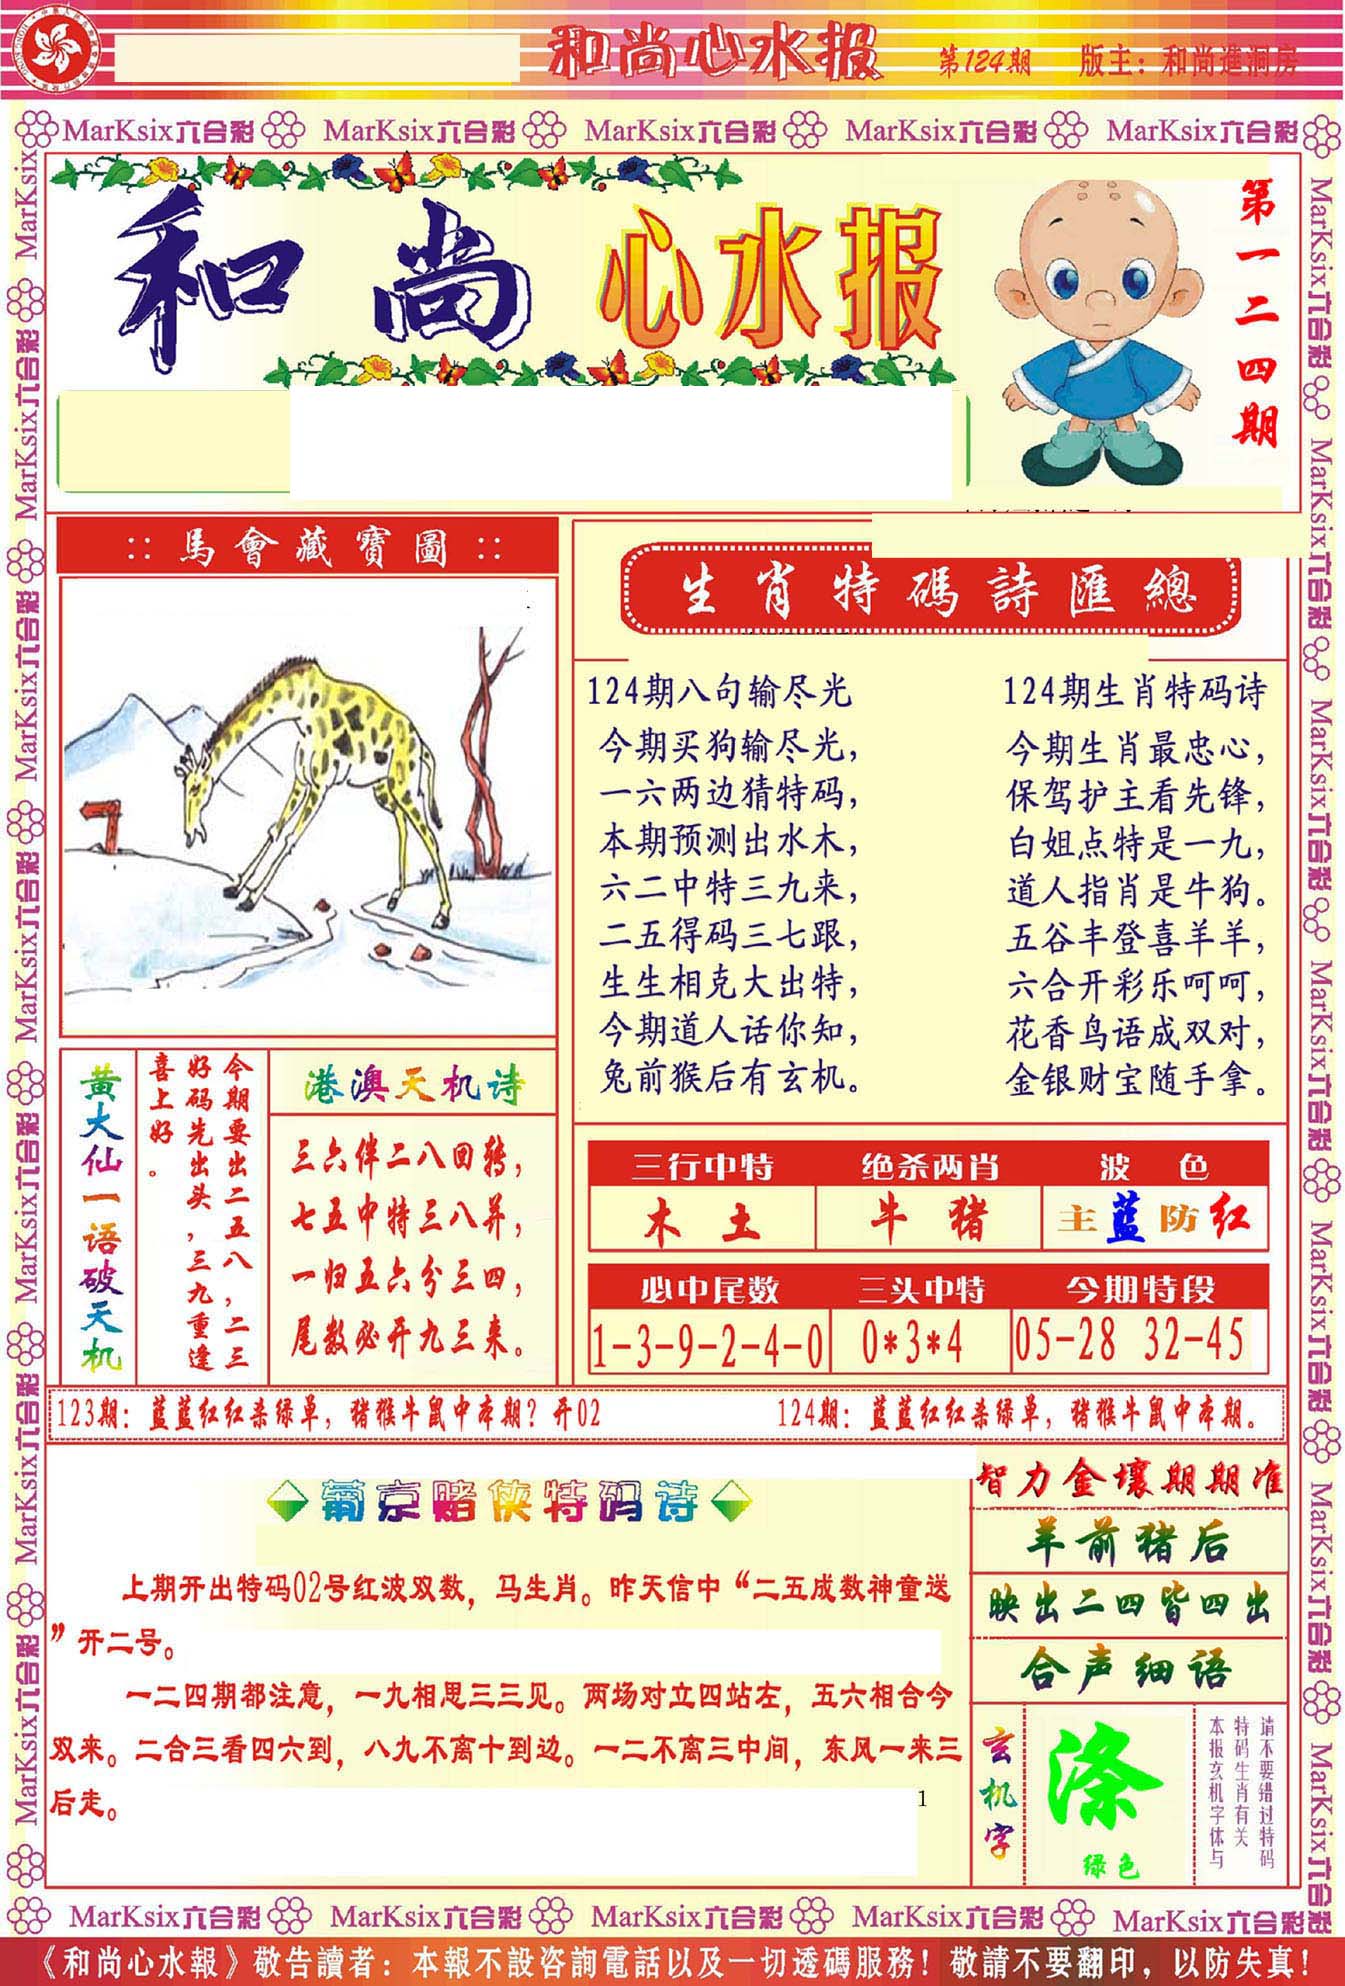 和尚心水报 第124期 版主：和尚進洞房
MarKsix六合彩 MarKsix六合彩 MarKsix六合彩 MarKsix六合彩 MarKsix六合彩
和尚心水报
第一二四期
::馬會藏寶圖::
生肖特碼詩匯總
124期八句输尽光
今期买狗输尽光，
一六两边猜特码，
本期预测出水木，
六二中特三九来，
二五得码三七跟，
生生相克大出特，
今期道人话你知，
兔前猴后有玄机。
124期生肖特码诗
今期生肖最忠心，
保驾护主看先锋，
白姐点特是一九，
道人指肖是牛狗。
五谷丰登喜羊羊，
六合开彩乐呵呵，
花香鸟语成双对，
金银财宝随手拿。
黄大仙一语破天机
今期要出二五八，二三
好码先出头，三九重逢
喜上好。
港澳天机诗
三六伴二八回转，
七五中特三八并，
一归五六分三四，
尾数必开九三来。
三行中特 绝杀两肖 波色
木土 牛猪 主蓝防红
必中尾数 三头中特 今期特段
1-3-9-2-4-0 0*3*4 05-28 32-45
123期：蓝蓝红红杀绿单，猪猴牛鼠中本期？开02
124期：蓝蓝红红杀绿单，猪猴牛鼠中本期。
葡京赌侠特码诗
上期开出特码02号红波双数，马生肖。昨天信中“二五成数神童送
”开二号。
一二四期都注意，一九相思三三见。两场对立四站左，五六相合今
双来。二合三看四六到，八九不离十到边。一二不离三中间，东风一来三
后走。
1
智力金壤期期准
羊前猪后
映出二四皆四出
合声细语
玄机字
涤
绿色
请不要错过特码
特码生肖有关
本报玄机字体与
MarKsix六合彩 MarKsix六合彩 MarKsix六合彩 MarKsix六合彩 MarKsix六合彩
《和尚心水報》敬告讀者：本報不設咨詢電話以及一切透碼服務！敬請不要翻印，以防失真！